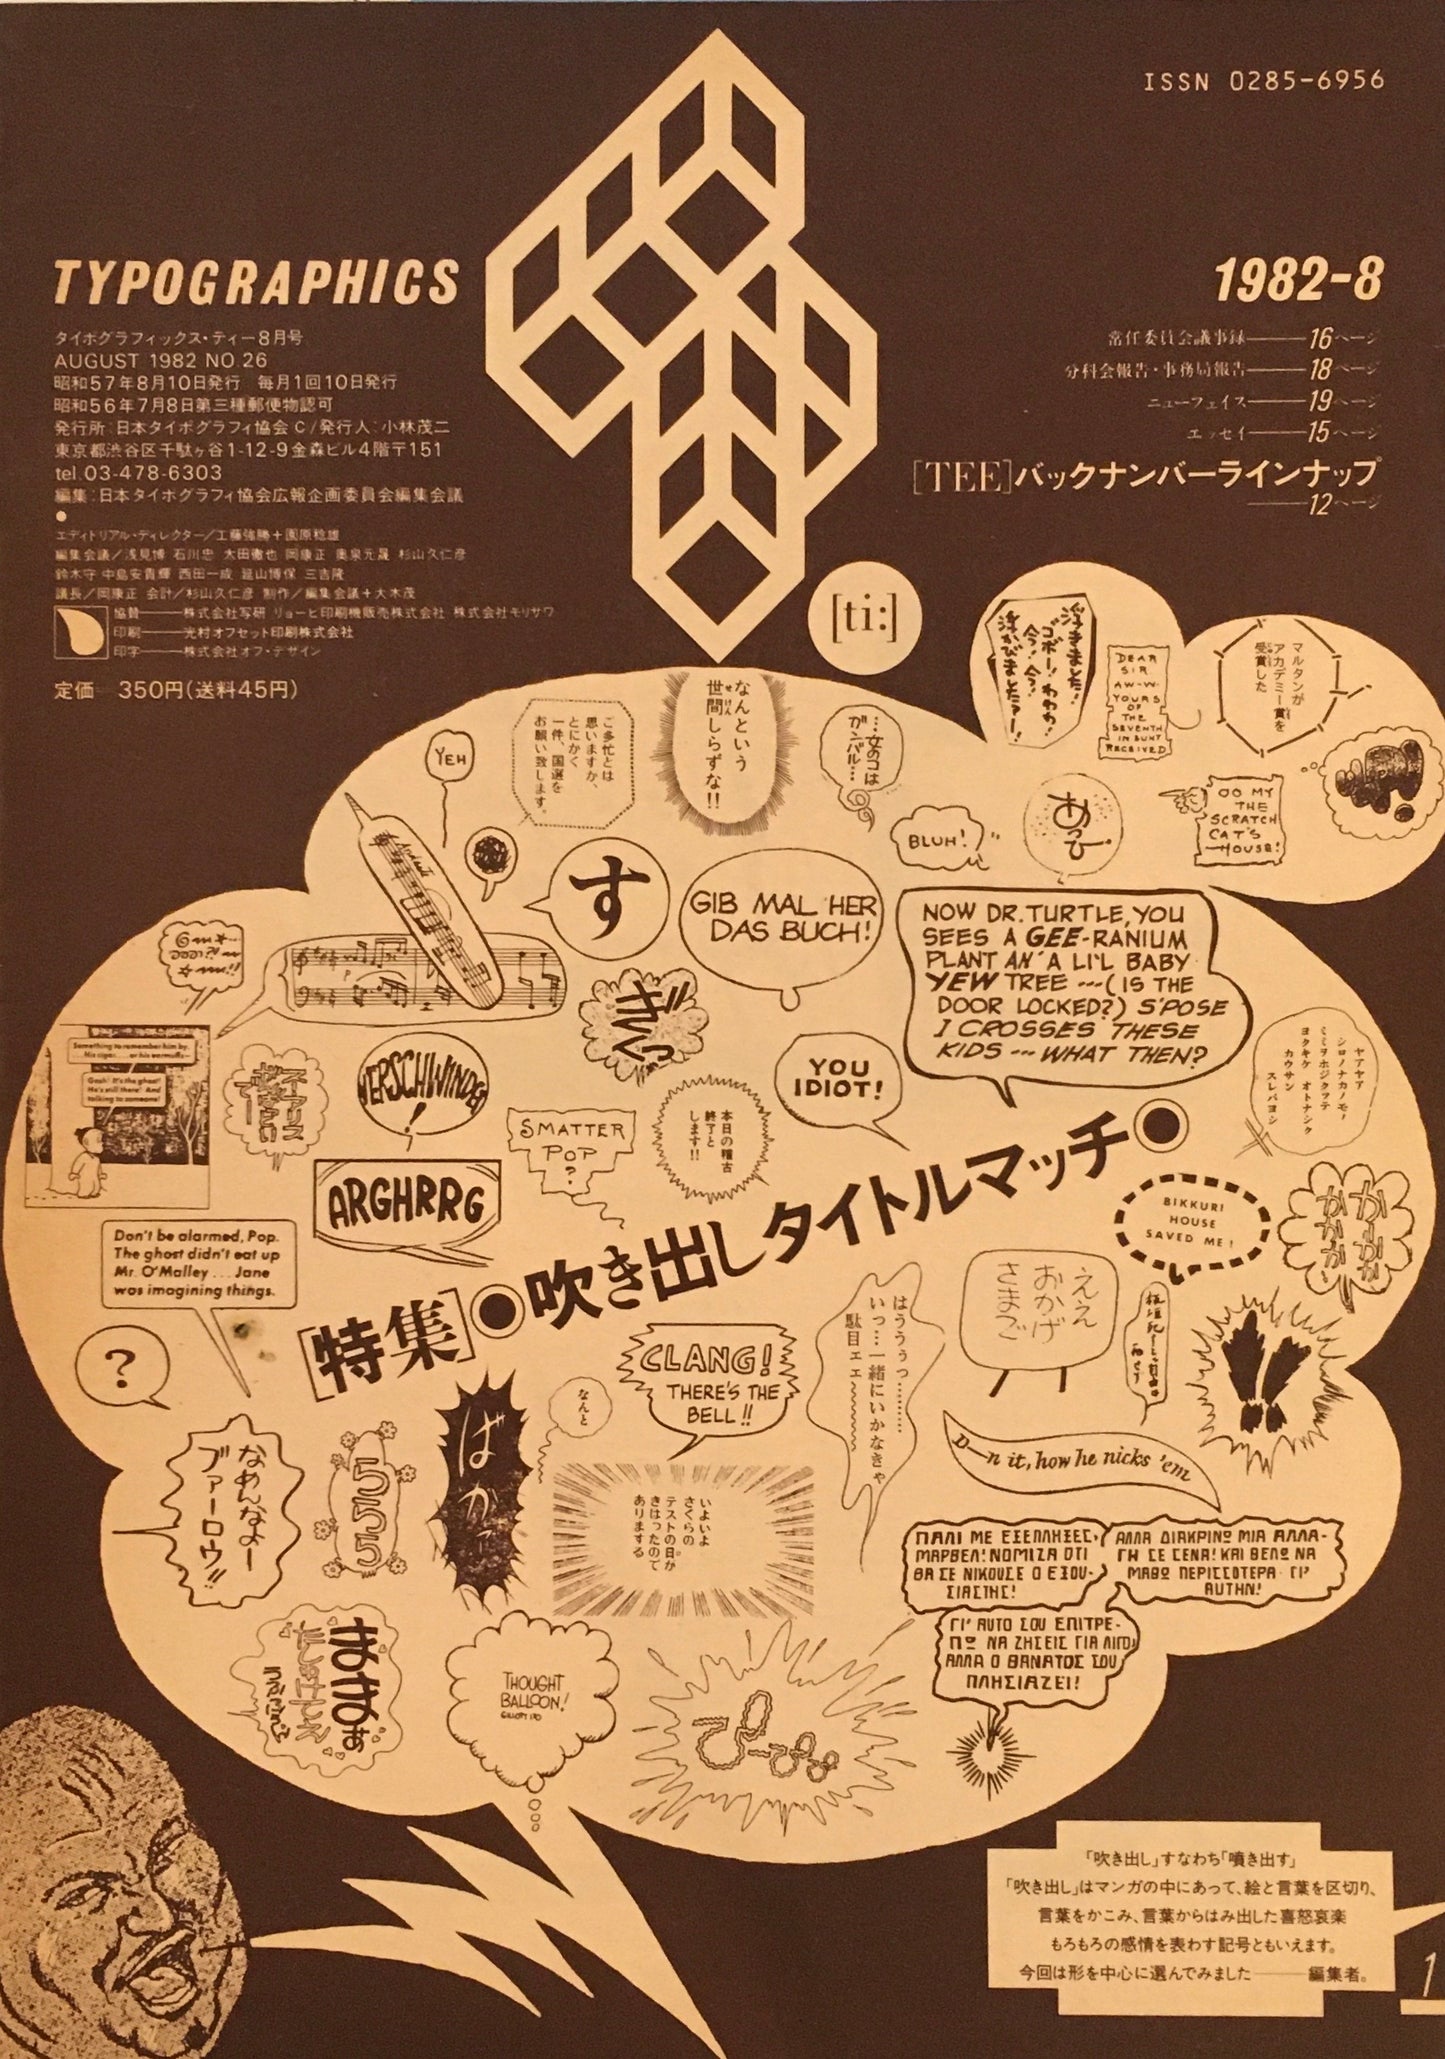 ISSN 0285-6956
TYPOGRAPHICS
タイポグラフィックス・ティー8月号
AUGUST 1982 NO.26
昭和57年8月10日発行　毎月1回10日発行
昭和56年7月8日第三種郵便物認可
発行所:日本タイポグラフィ協会 C/発行人:小林茂二
東京都渋谷区千駄ヶ谷1-12-9金森ビル4階〒151
tel.03-478-6303
編集:日本タイポグラフィ協会広報企画委員会編集会議
エディトリアル・ディレクター/工藤強勝+園原稔雄
編集会議/浅見博 石川忠 太田徹也 岡康正 奥泉元晟 杉山久仁彦
鈴木守 中島安貴輝 西田一成 延山博保 三吉隆
議長/岡康正 会計/杉山久仁彦 制作/編集会議+大木茂
協賛——株式会社写研 リョービ印刷機販売株式会社 株式会社モリサワ
印刷——光村オフセット印刷株式会社
印字——株式会社オフ・デザイン
定価　350円(送料45円)
1982-8
常任委員会議事録——16ページ
分科会報告・事務局報告——18ページ
ニューフェイス——19ページ
エッセイ——15ページ
[TEE]バックナンバーラインナップ
——12ページ
[ti:]
浮きました!
ゴボー!わわわ!
今!今!
浮かびましたァー!
DEAR
SIR
AW-W-
YOURS
OF
THE
SEVENTH
INSUNT
RECEIVED
マルタンが
アカデミー賞を
受賞した
なんという
世間しらずな!!
せけん
…女のコは
ガンバル…
ご多忙とは
思いますが、
とにかく
一件、国選を
お願い致します。
YEH
BLUH!
あっひー
OO MY
THE
SCRATCH
CAT'S
HOUSE!
す
GIB MAL HER
DAS BUCH!
NOW DR. TURTLE, YOU
SEES A GEE-RANIUM
PLANT AN' A LI'L BABY
YEW TREE ---(IS THE
DOOR LOCKED?) S'POSE
I CROSSES THESE
KIDS --- WHAT THEN?
Something to remember him by.
. . . His cigar. . . . or his earmuffs—
Gosh! It's the ghost!
He's still there! And
talking to someone!
ぎくっ
VERSCHWINDE!
YOU
IDIOT!
ヤアヤア
シロノナカノモノ
ミミヲホジクッテ
ヨクキケ　オトナシク
カウサン
スレバヨシ
SMATTER
POP
?
本日の稽古
終了と
します!!
ARGHRRG
BIKKURI
HOUSE
SAVED ME!
Don't be alarmed, Pop.
The ghost didn't eat up
Mr. O'Malley . . . Jane
was imagining things.
[特集]●吹き出しタイトルマッチ●
ええ
おかげ
さまで
?
CLANG!
THERE'S THE
BELL!!
はうううっ…………
いっ…一緒にいかなきゃ
駄目ェェ〜
!!
なんと
ばかァー
なめんなよー
ブァーロウ!!
555
いよいよ
さくらの
テストの日が
きはったのて
ありまする
D—n it, how he nicks 'em
ΠΑΛΙ ΜΕ ΕΞΕΠΛΗΞΕΣ,
ΜΑΡΒΕΛ! ΝΟΜΙΖΑ ΟΤΙ
ΘΑ ΣΕ ΝΙΚΟΥΣΕ Ο ΕΞΟΥ-
ΣΙΑΣΤΗΣ!
ΑΛΛΑ ΔΙΑΚΡΙΝΩ ΜΙΑ ΑΛΛΑ-
ΓΗ ΣΕ ΣΕΝΑ! ΚΑΙ ΘΕΛΩ ΝΑ
ΜΑΘΩ ΠΕΡΙΣΣΟΤΕΡΑ ΓΙ'
ΑΥΤΗΝ!
ΓΙ' ΑΥΤΟ ΣΟΥ ΕΠΙΤΡΕ-
ΠΩ ΝΑ ΖΗΣΕΙΣ ΓΙΑ ΛΙΓΟ,
ΑΛΛΑ Ο ΘΑΝΑΤΟΣ ΣΟΥ
ΠΛΗΣΙΑΖΕΙ!
THOUGHT
BALLOON!
「吹き出し」すなわち「噴き出す」
「吹き出し」はマンガの中にあって、絵と言葉を区切り、
言葉をかこみ、言葉からはみ出した喜怒哀楽
もろもろの感情を表わす記号ともいえます。
今回は形を中心に選んでみました——編集者。
1